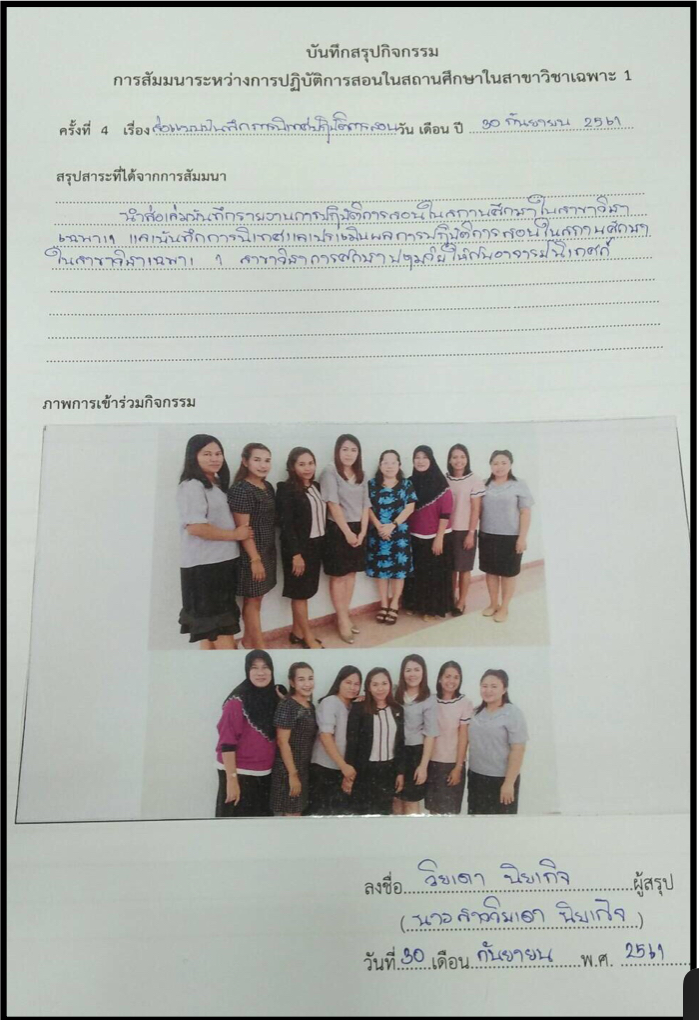 บันทึกสรุปกิจกรรม
การสัมมนาระหว่างการปฏิบัติการสอนในสถานศึกษาในสาขาวิชาเฉพาะ 1
ครั้งที่ 4 เรื่อง ส่งแบบบันทึกการนิเทศปฏิบัติการสอน วัน เดือน ปี 30 กันยายน 2561
สรุปสาระที่ได้จากการสัมมนา
นำส่งเล่มบันทึกรายงานการปฏิบัติการสอนในสถานศึกษาในสาขาวิชา
เฉพาะ 1 และบันทึกการนิเทศและประเมินผลการปฏิบัติการสอนในสถานศึกษา
ในสาขาวิชาเฉพาะ 1 สาขาวิชาการศึกษาปฐมวัย ให้กับอาจารย์นิเทศก์
ภาพการเข้าร่วมกิจกรรม
ลงชื่อ นิยเกิจ ผู้สรุป
(นางสาว นิยเกิจ)
วันที่ 30 เดือน กันยายน พ.ศ. 2561